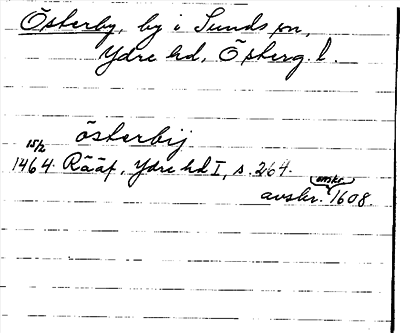 Österby, by i Sunds sn,
Ydre hd, Österg. l.
österbij
15/2
1464. Rääf, Ydre hd I, s. 264.
avskr. 1608.